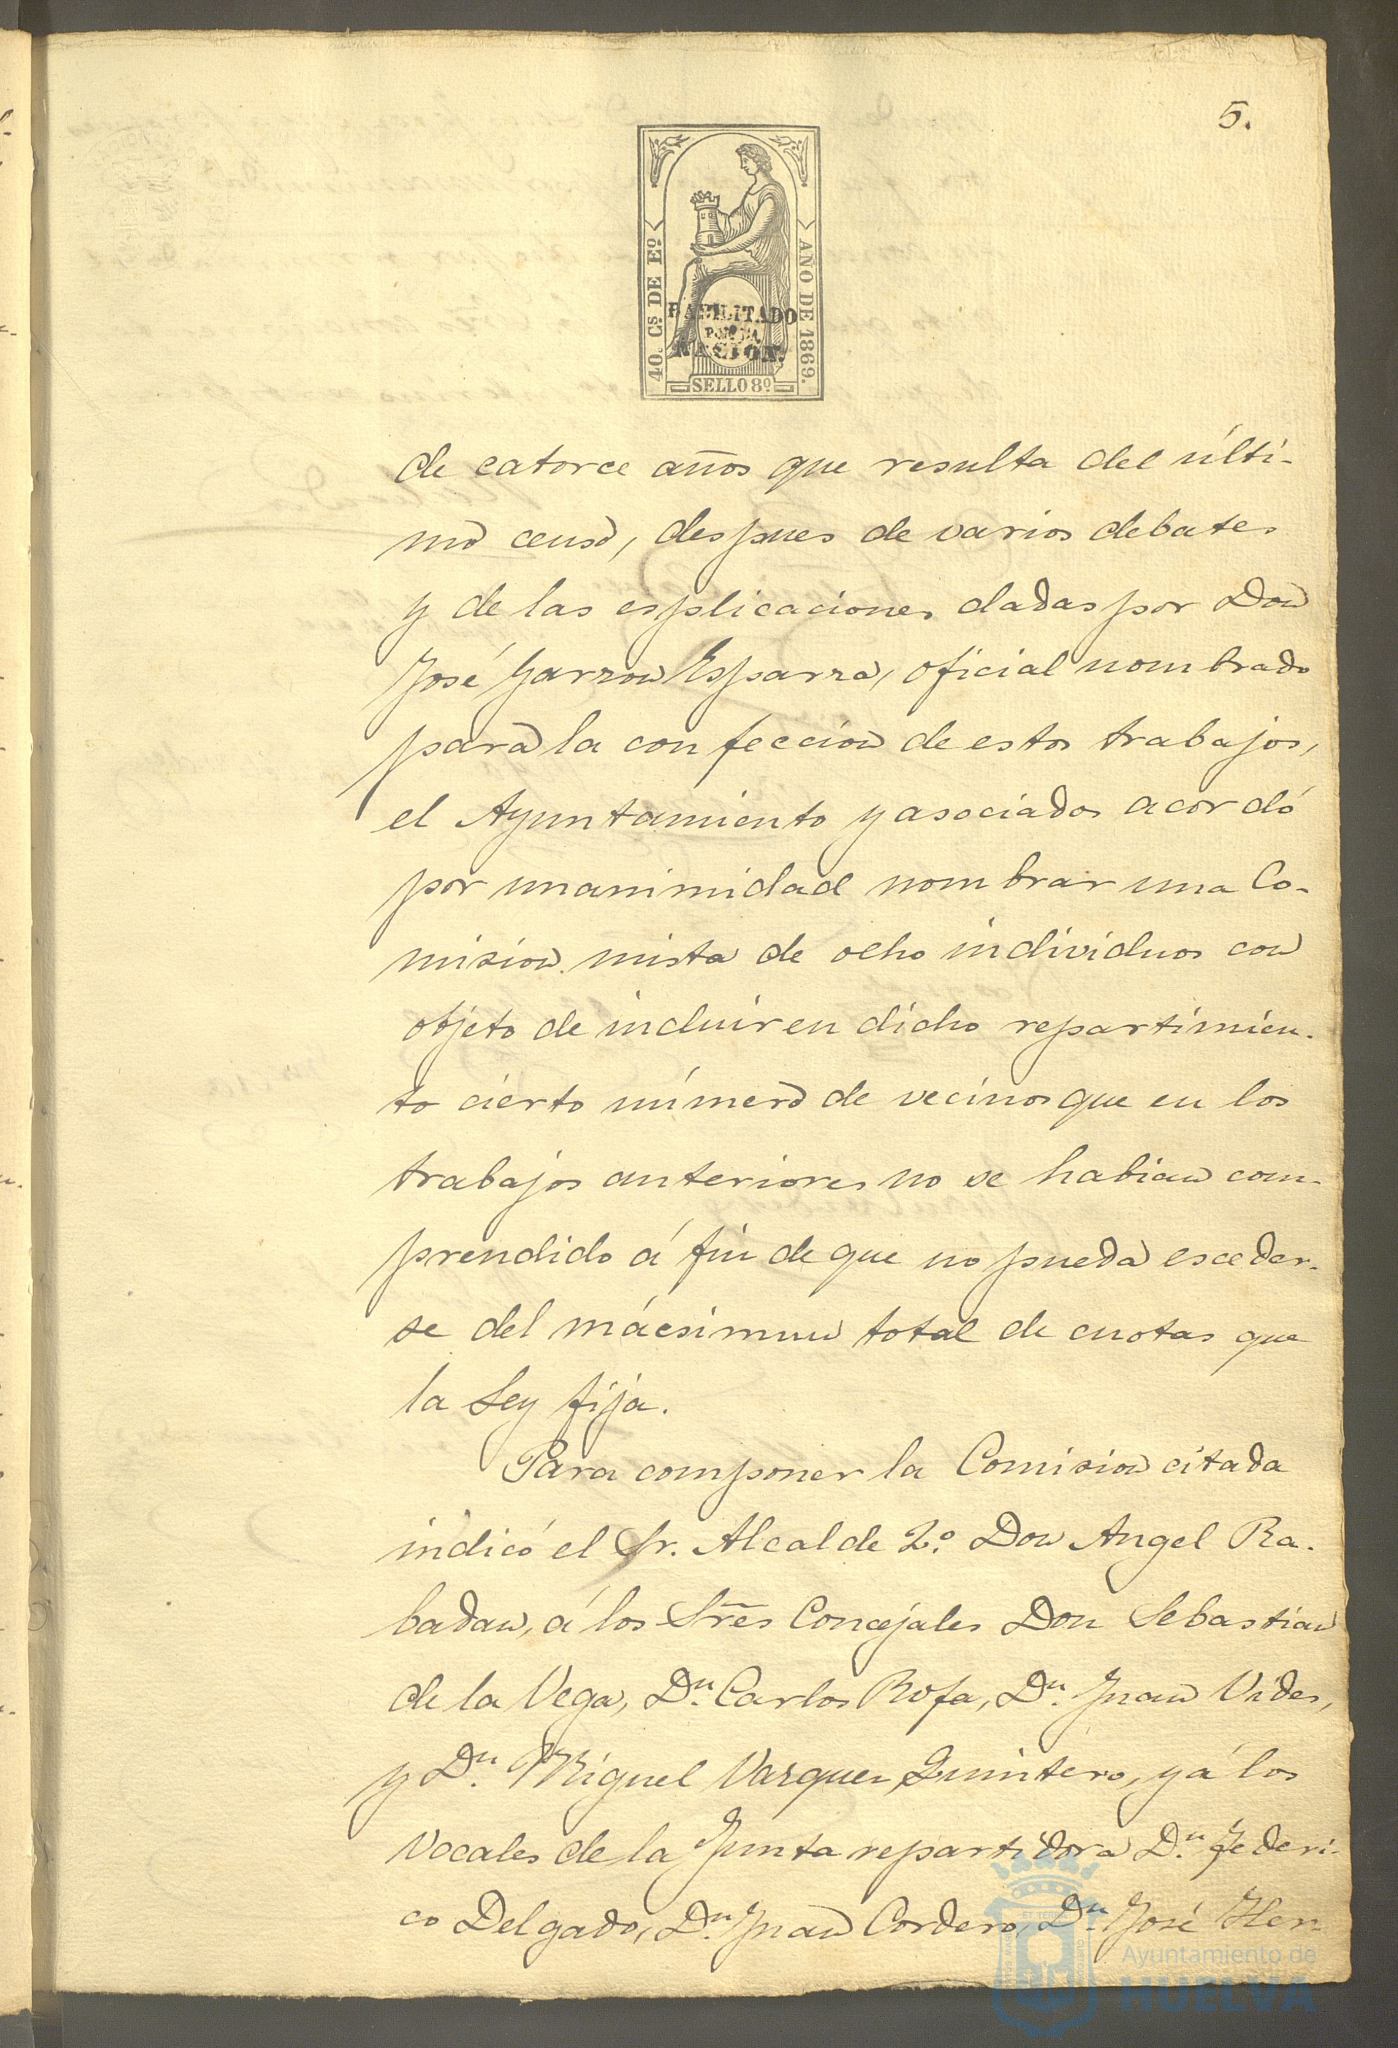 5.
40. Cs DE Eº
AÑO DE 1869.
HABILITADO
POR LA
NACION.
SELLO 8º
de catorce años que resulta del últi-
mo censo, despues de varios debates
y de las esplicaciones dadas por Don
José Garzon Esparza, oficial nombrado
para la confeccion de estos trabajos,
el Ayuntamiento y asociados acordó
por unanimidad nombrar una Co-
mision mista de ocho individuos con
objeto de incluir en dicho repartimien-
to cierto número de vecinos que en los
trabajos anteriores no se habian com-
prendido á fin de que no pueda esceder-
se del máesimun total de cuotas que
la Ley fija.
Para componer la Comision citada
indicó el Sr. Alcalde 2º Don Angel Ra-
badan, á los Sres Concejales Don Sebastian
de la Vega, Dn. Carlos Rofa, Dn. Juan Vides,
y Dn. Miguel Vazquez Quintero, y á los
Vocales de la Junta repartidora Dn. Federi-
co Delgado, Dn. Juan Cordero, Dn. José Her-
Ayuntamiento de
HUELVA